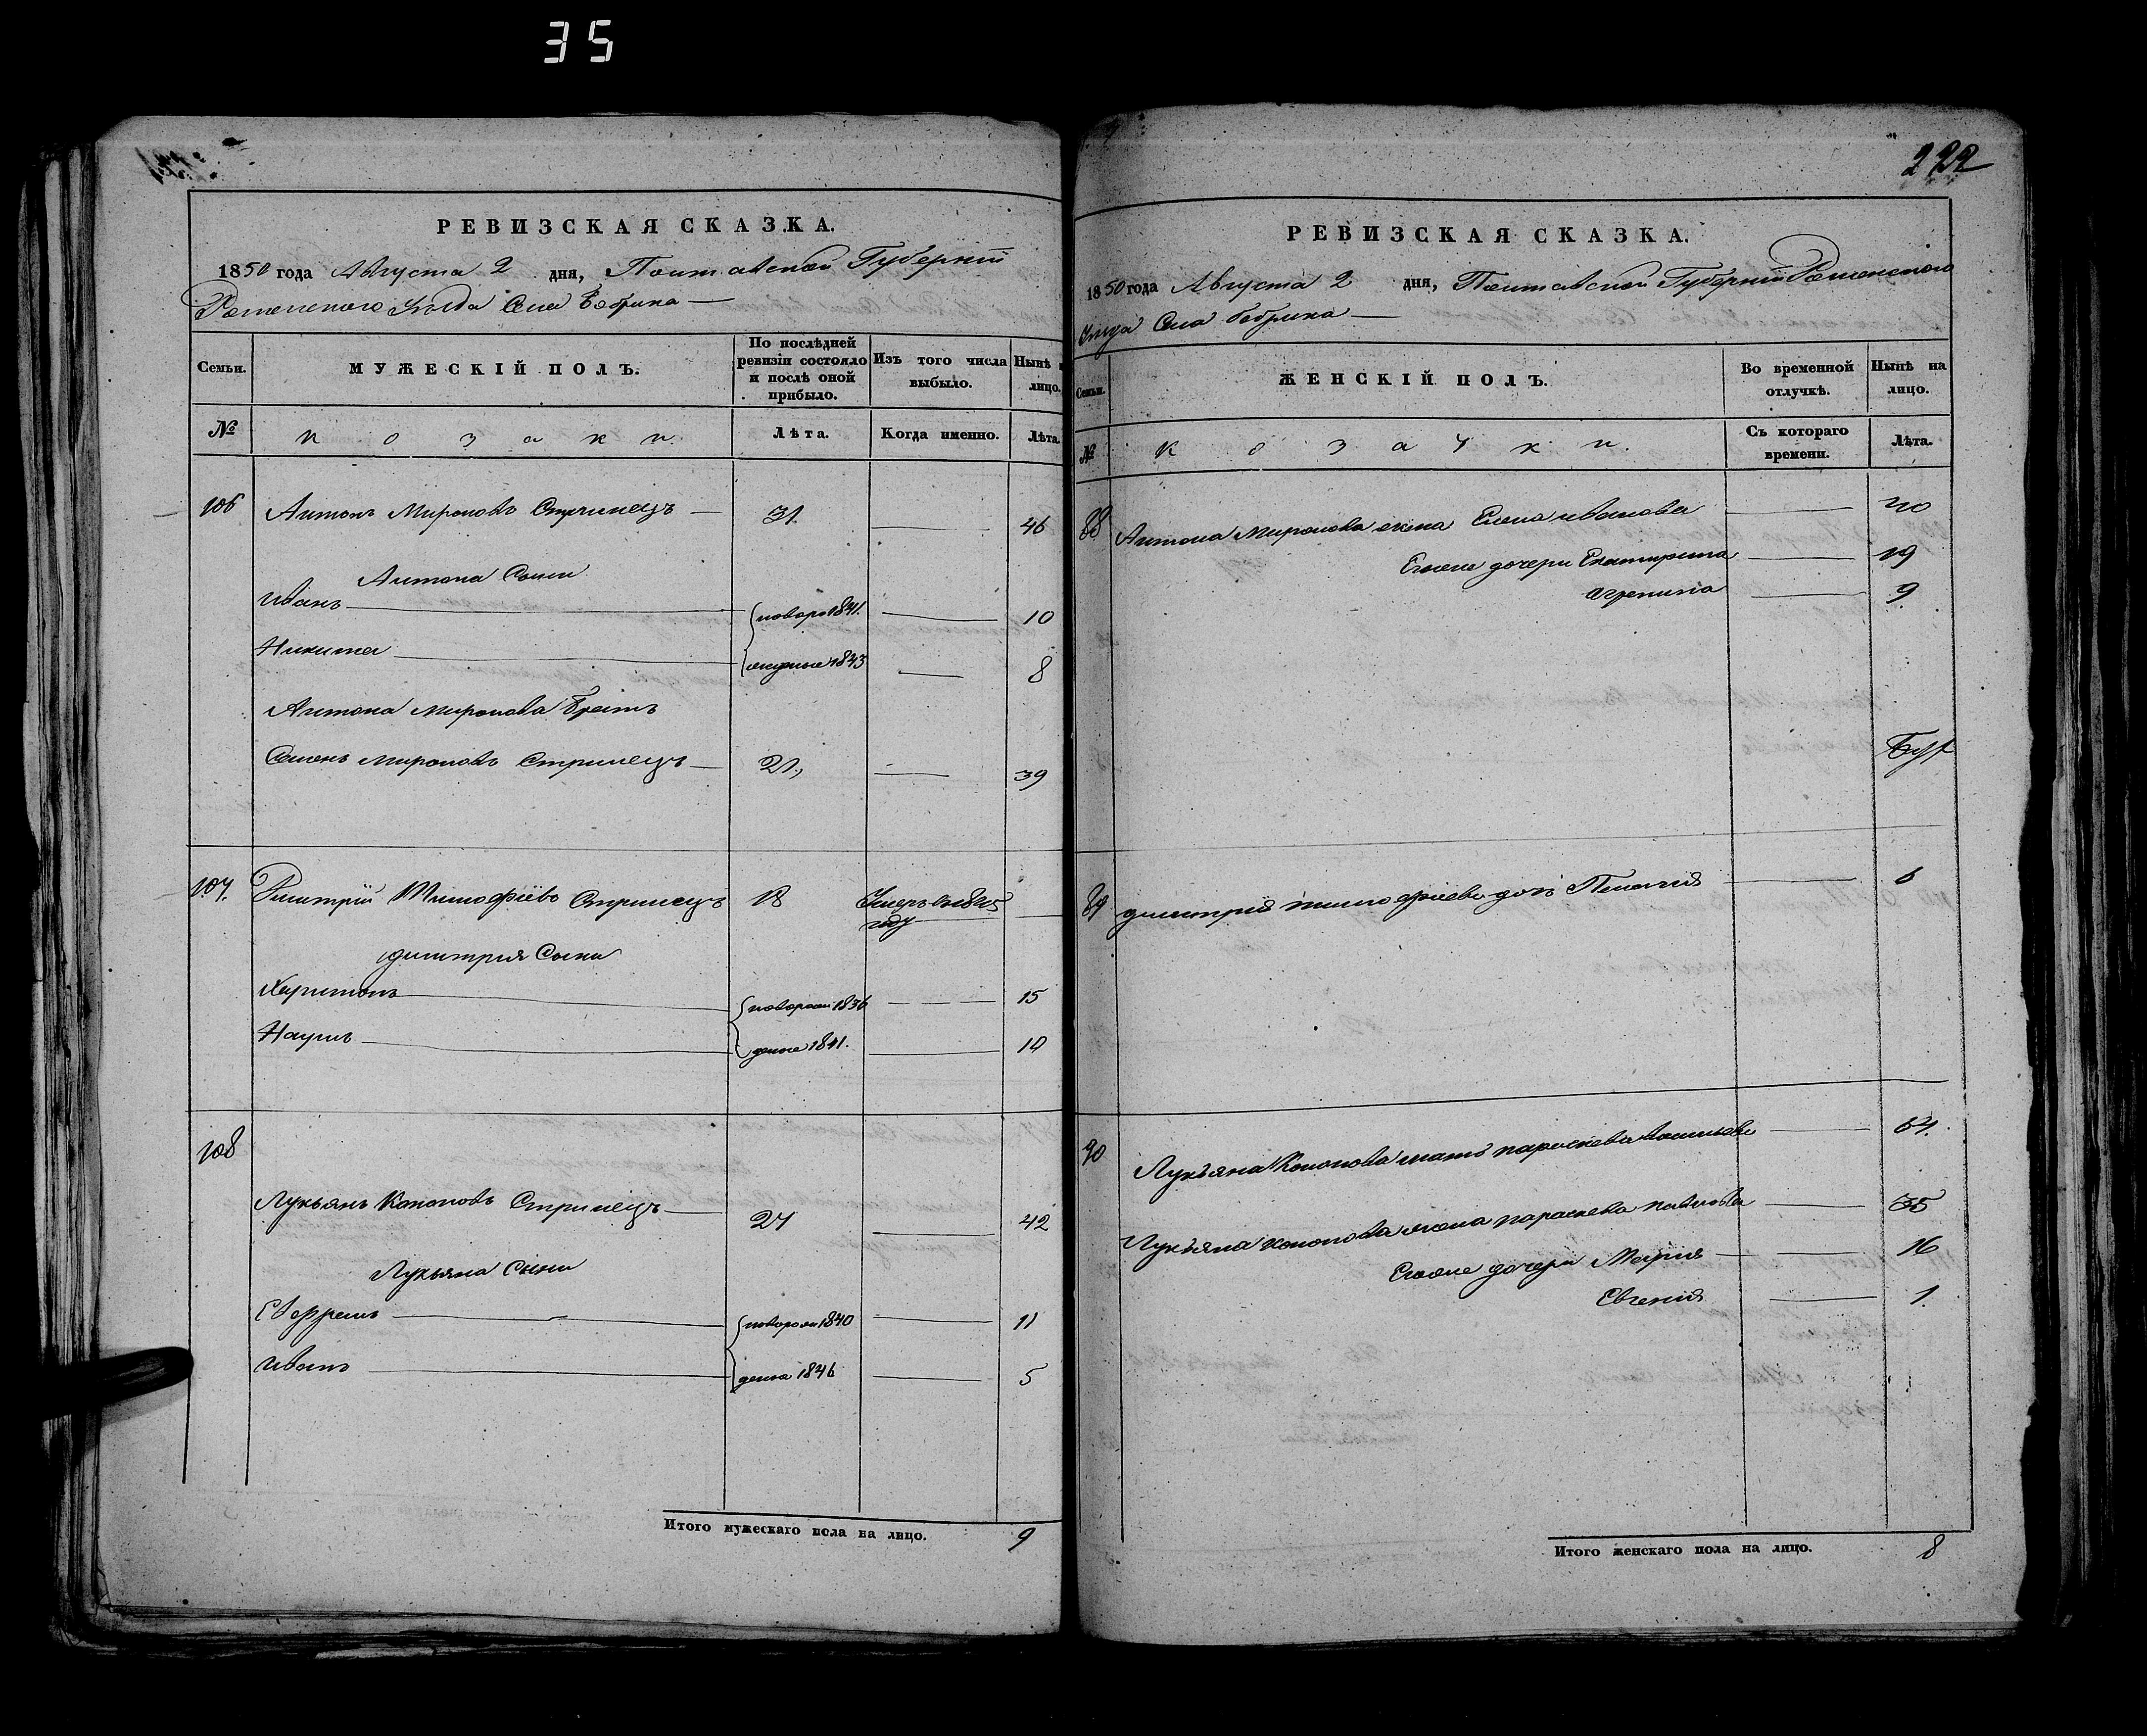 35
РЕВИЗСКАЯ СКАЗКА.
1850 года Августа 2 дня, Полтавской Губерніи
Роменского Уѣзда Села Бобрика
Семьи.
МУЖЕСКІЙ ПОЛЪ.
По послѣдней ревизіи состояло и послѣ оной прибыло.
Изъ того числа выбыло.
Нынѣ
лицо.
№
козаки.
Лѣта.
Когда именно.
Лѣта.
106 Антонъ Мироновъ Стрилецъ 31. 46
Антона Сыни
Иванъ 1841. 10
Никита 1843 8
Антона Миронова братъ
Семенъ Мироновъ Стрилецъ 39
107. Дмитрій Тимофіевъ Стрилецъ
году
Димитрия Сыни
Харитонъ новорож 1836 15
Наумъ денне 1841. 10
108
Лукьянъ Кононовъ Стрилецъ 27 42
Лукьяна Сыни
новорож 1840 11
Иванъ денна 1846 5
Итого мужескаго пола на лицо. 9
222
РЕВИЗСКАЯ СКАЗКА.
1850 года Августа 2 дня, Полтавской Губерніи Роменского
Села Бобрика
Семьи.
ЖЕНСКІЙ ПОЛЪ.
Во временной отлучкѣ.
Нынѣ на лицо.
№
козачки.
Съ котораго времени.
Лѣта.
88 Антона Миронова жена Елена Иванова
Егоже дочери Екатирина 19
Агрепина 9
89 Димитрия Тимофиева дочь Пелагия 6
90 Лукъяна Кононова мать Параскева Васильева 64.
Лукъяна Кононова жена Параскева Павлова 35
Егоже дочери Мария 16
Евгения 1.
Итого женскаго пола на лицо. 8